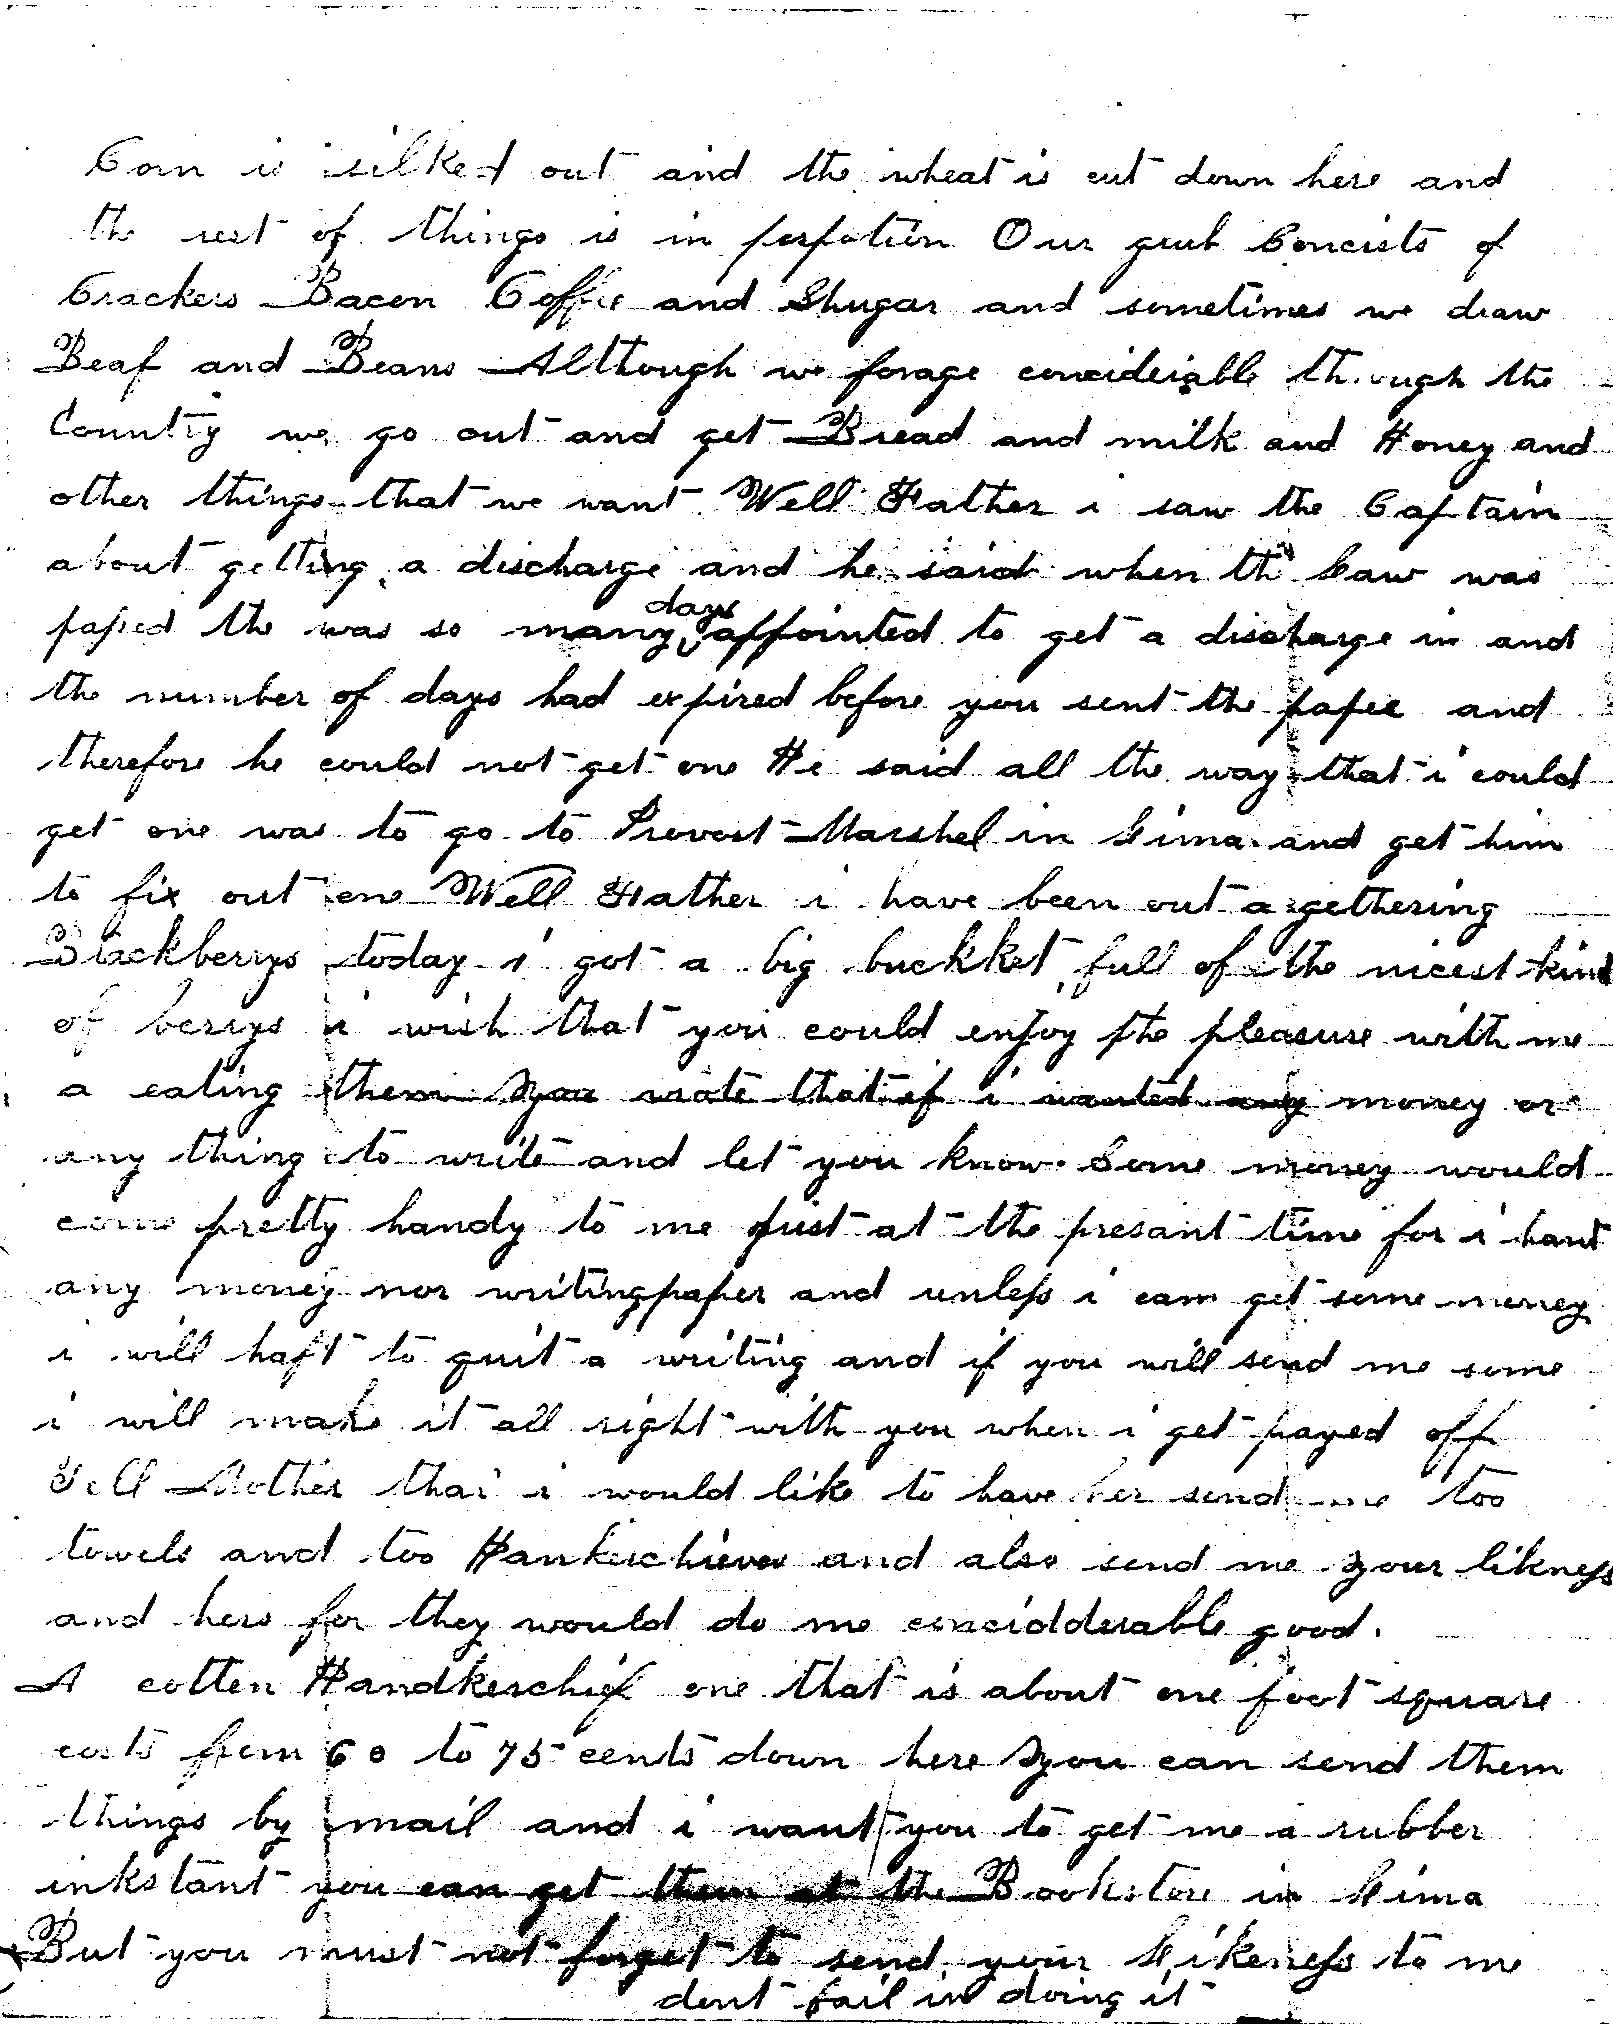 Corn is silked out and the wheat is cut down here and
the rest of things is in porpotion Our grub Concists of
Crackers Bacon Coffee and Shugar and sometimes we draw
Beaf and Beans Although we forage conciderable through the
Country we go out and get Bread and milk and Honey and
other things that we want Well Father i saw the Captain
about getting a discharge and he said when the Law was
passed the was so many days appointed to get a discharge in and
the number of days had expired before you sent the paper and
therefore he could not get one He said all the way that i could
get one was to go to Provost Marshel in Lima and get him
to fix out one Well Father i have been out a gethering
Blackberrys today i got a big buckket full of the nicest kind
of berrys i wish that you could enjoy the pleasure with me
a eating them You wrote that if i wanted any money or
any thing to write and let you know. Some money would
come pretty handy to me just at the presant time for i hant
any money nor writingpaper and unless i can get some money
i will haft to quit a writing and if you will send me some
i will make it all right with you when i get payed off
Tell Mother that i would like to have her send me too
towels and too Hankerchieves and also send me your likness
and hers for they would do me concidderable good.
A cotten Handkerchief one that is about one foot square
costs from 60 to 75 cents down here You can send them
things by mail and i want you to get me a rubber
inkstant you can get them at the Bookstore in Lima
But you must not forget to send your Likeness to me
dont fail in doing it